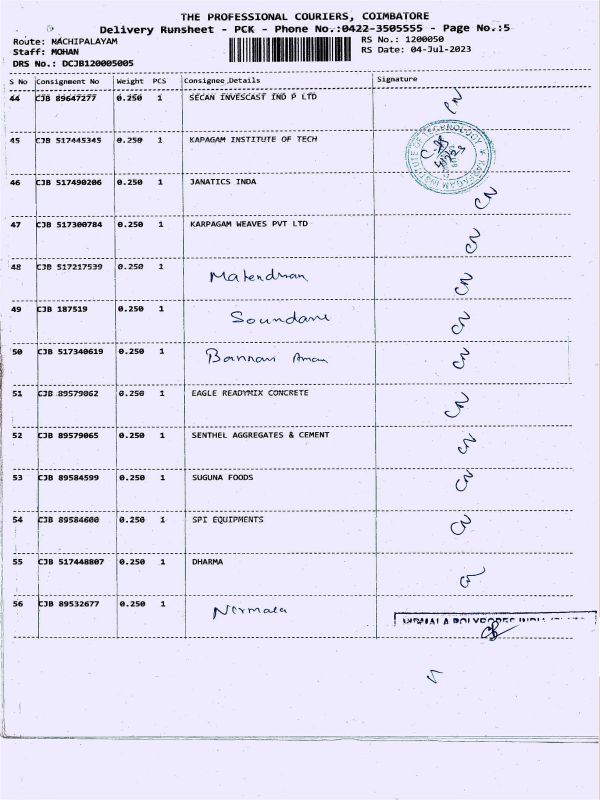 THE PROFESSIONAL COURIERS, COIMBATORE
Delivery Runsheet - PCK - Phone No.:0422-3505555 - Page No.:5
Route: MACHIPALAYAM RS No.: 1200050
Staff: MOHAN RS Date: 04-Jul-2023
DRS No.: DCJB120005005
S No Consignment No Weight PCS Consignee Details Signature
44 CJB 89647277 0.250 1 SECAN INVESCAST IND P LTD CN
45 CJB 517445345 0.250 1 KAPAGAM INSTITUTE OF TECH
INSTITUTE OF TECHNOLOGY ★ KARPAGAM
46 CJB 517490206 0.250 1 JANATICS INDA CN
47 CJB 517300784 0.250 1 KARPAGAM WEAVES PVT LTD CN
48 CJB 517217539 0.250 1 CN
49 CJB 187519 0.250 1 CN
50 CJB 517340619 0.250 1 Bannari Aman CN
51 CJB 89579062 0.250 1 EAGLE READYMIX CONCRETE CN
52 CJB 89579065 0.250 1 SENTHEL AGGREGATES & CEMENT CN
53 CJB 89584599 0.250 1 SUGUNA FOODS CN
54 CJB 89584600 0.250 1 SPI EQUIPMENTS CN
55 CJB 517448807 0.250 1 DHARMA
56 CJB 89532677 0.250 1 Nirmala